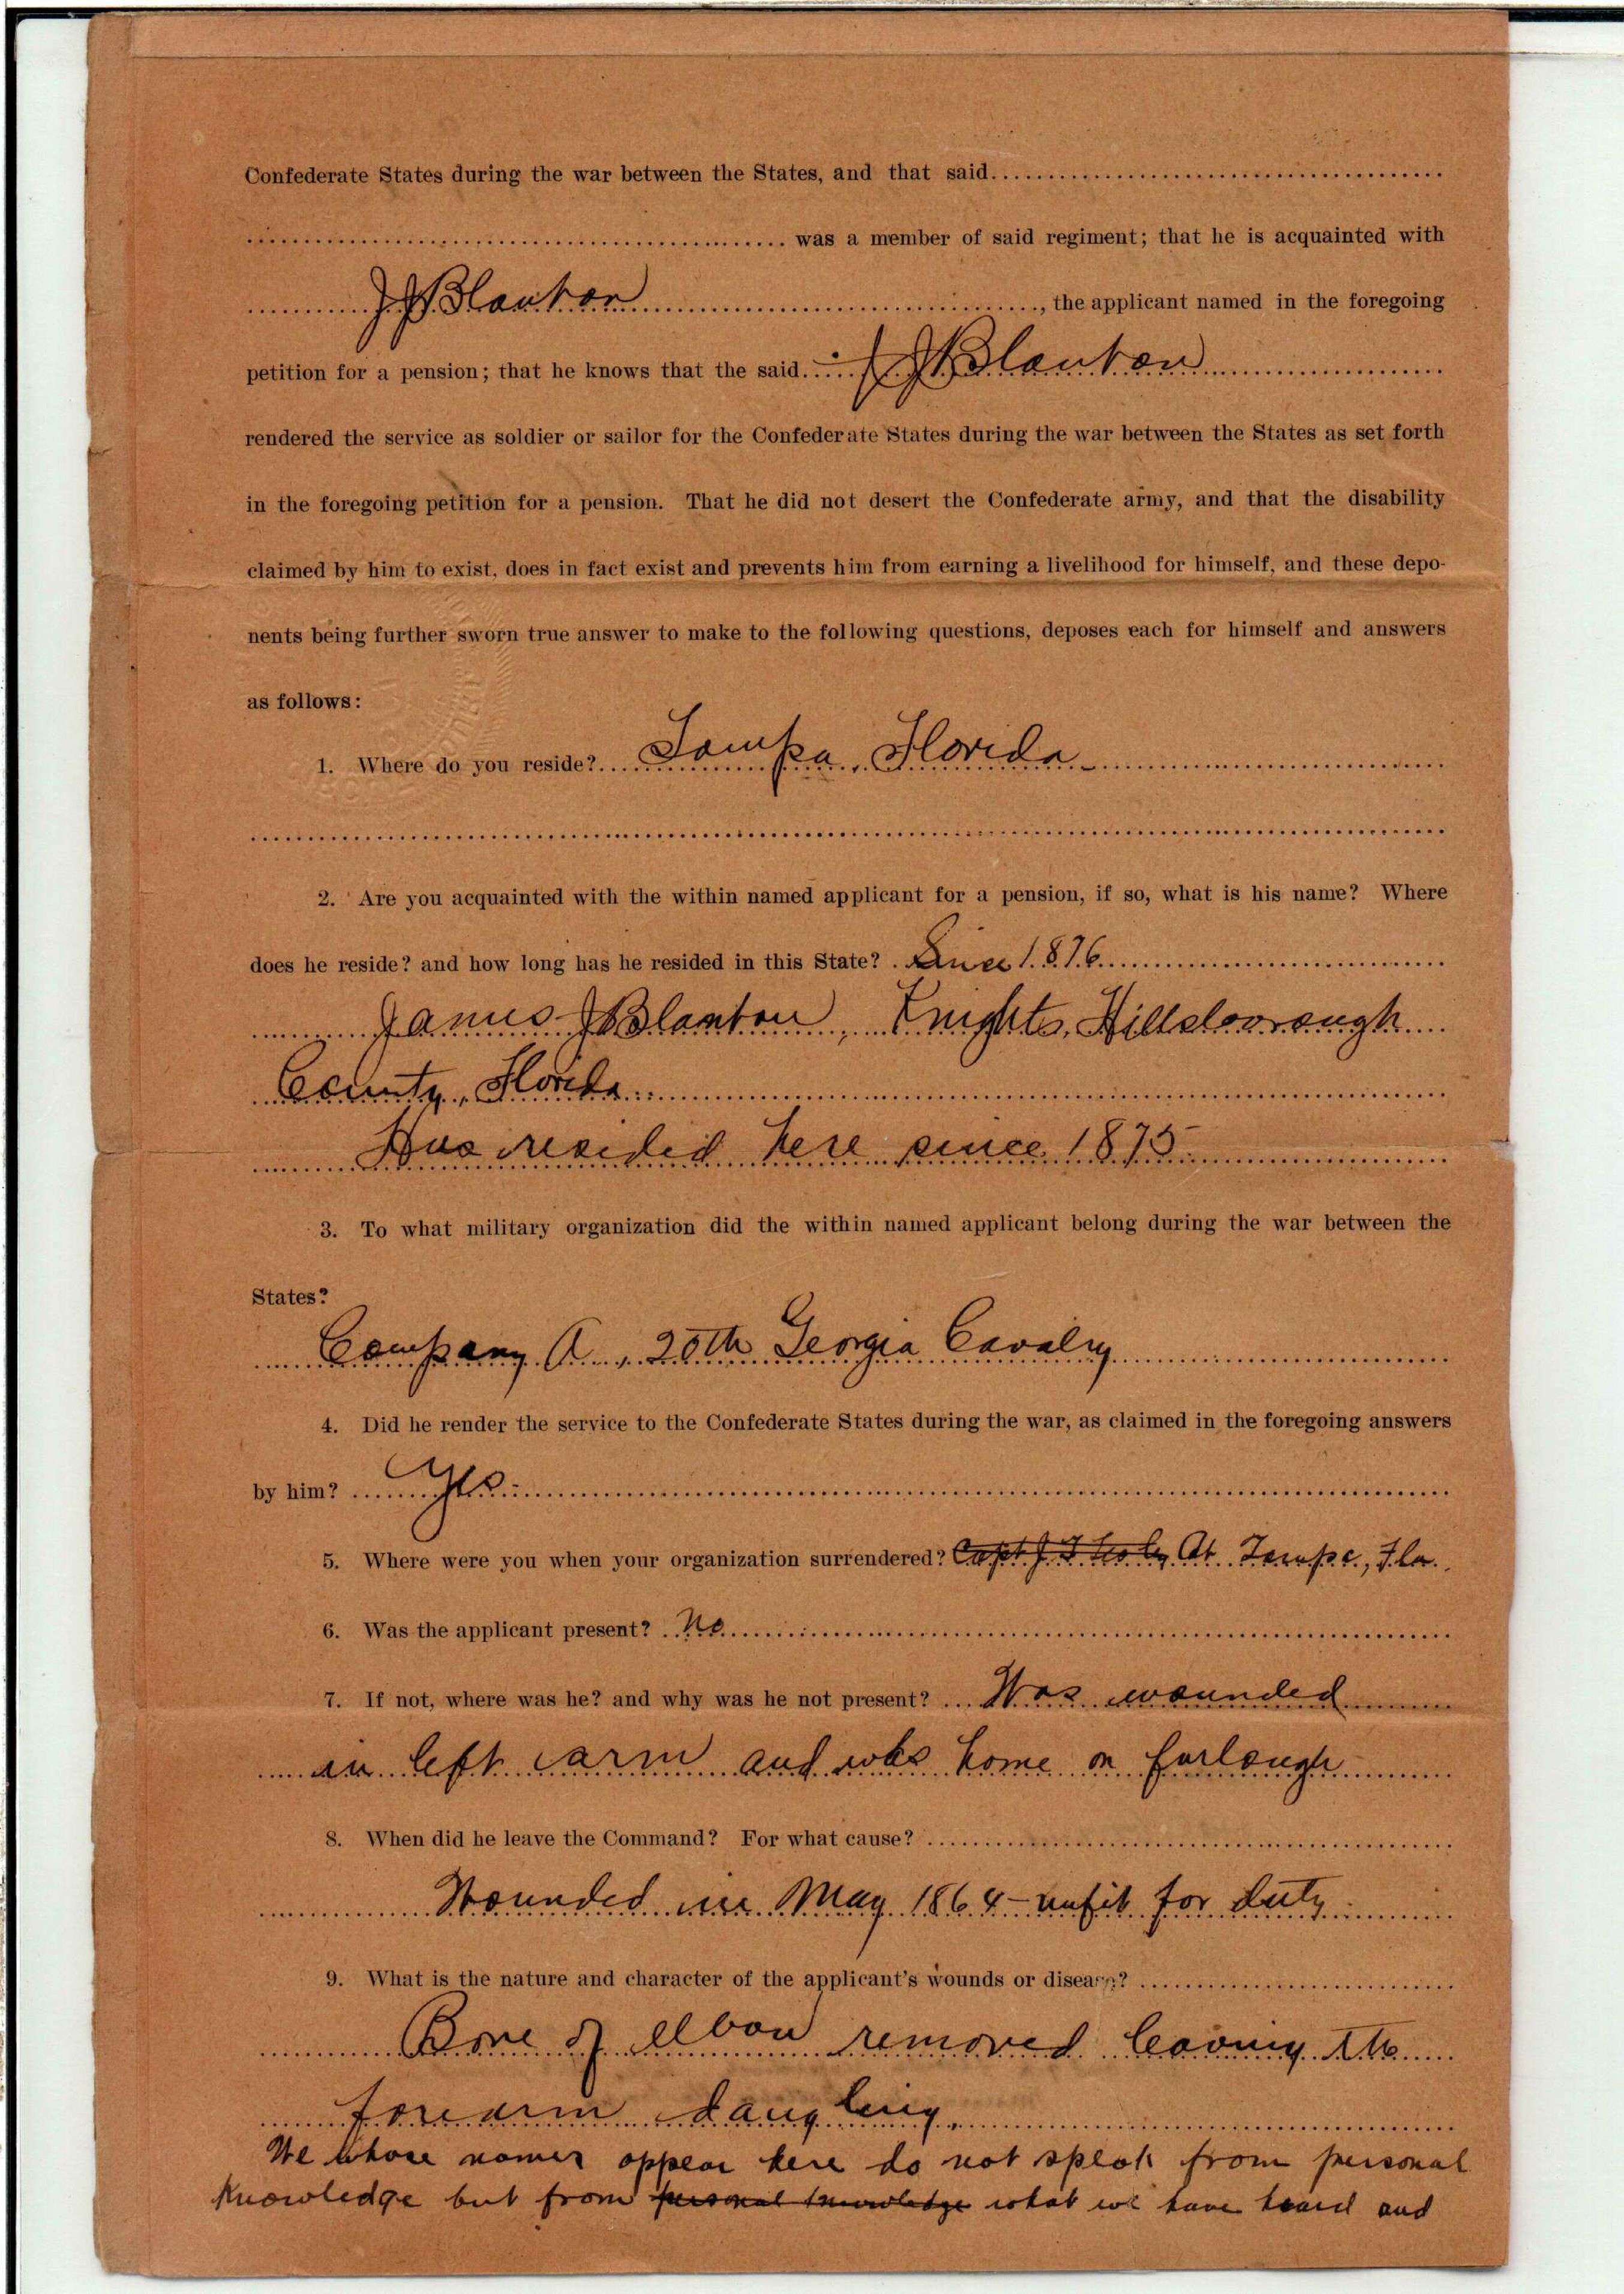 Confederate States during the war between the States, and that said
was a member of said regiment; that he is acquainted with
J J Blanton, the applicant named in the foregoing
petition for a pension; that he knows that the said J J Blanton
rendered the service as soldier or sailor for the Confederate States during the war between the States as set forth
in the foregoing petition for a pension. That he did not desert the Confederate army, and that the disability
claimed by him to exist, does in fact exist and prevents him from earning a livelihood for himself, and these depo-
nents being further sworn true answer to make to the following questions, deposes each for himself and answers
as follows:
1. Where do you reside? Tampa, Florida
2. Are you acquainted with the within named applicant for a pension, if so, what is his name? Where
does he reside? and how long has he resided in this State? Since 1876
James J Blanton, Knights, Hillsborough
County, Florida
Has resided here since 1875
3. To what military organization did the within named applicant belong during the war between the
States?
Company A, 20th Georgia Cavalry
4. Did he render the service to the Confederate States during the war, as claimed in the foregoing answers
by him? Yes
5. Where were you when your organization surrendered? Capt J T At Tampa, Fla.
6. Was the applicant present? No
7. If not, where was he? and why was he not present? Was wounded
in left arm and was home on furlough
8. When did he leave the Command? For what cause?
Wounded in May 1864 - unfit for duty
9. What is the nature and character of the applicant's wounds or disease?
Bone of elbow removed leaving the
forearm dangling.
We whose names appear here do not speak from personal
Knowledge but from personal knowledge what we have heard and